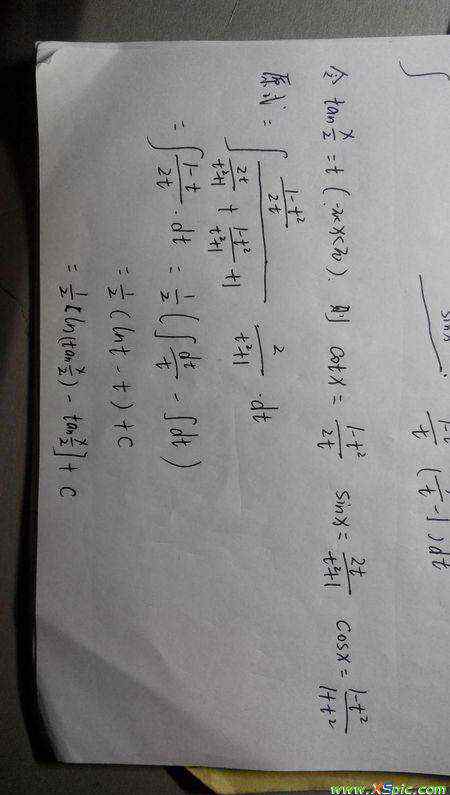 ∫
sinx
1-t
t
(1/t - 1)dt
令 tan x/2 = t (-π<x<π). 则 cotx = (1-t²)/(2t) sinx = 2t/(t²+1) cosx = (1-t²)/(1+t²)
原式 = ∫ ((1-t²)/(2t))/(2t/(t²+1) + (1-t²)/(t²+1) + 1) · 2/(t²+1) · dt
= ∫ (1-t)/(2t) · dt = 1/2 (∫ dt/t - ∫dt)
= 1/2 (lnt - t) + C
= 1/2 [ln(tan x/2) - tan x/2] + C
www.XSpic.com